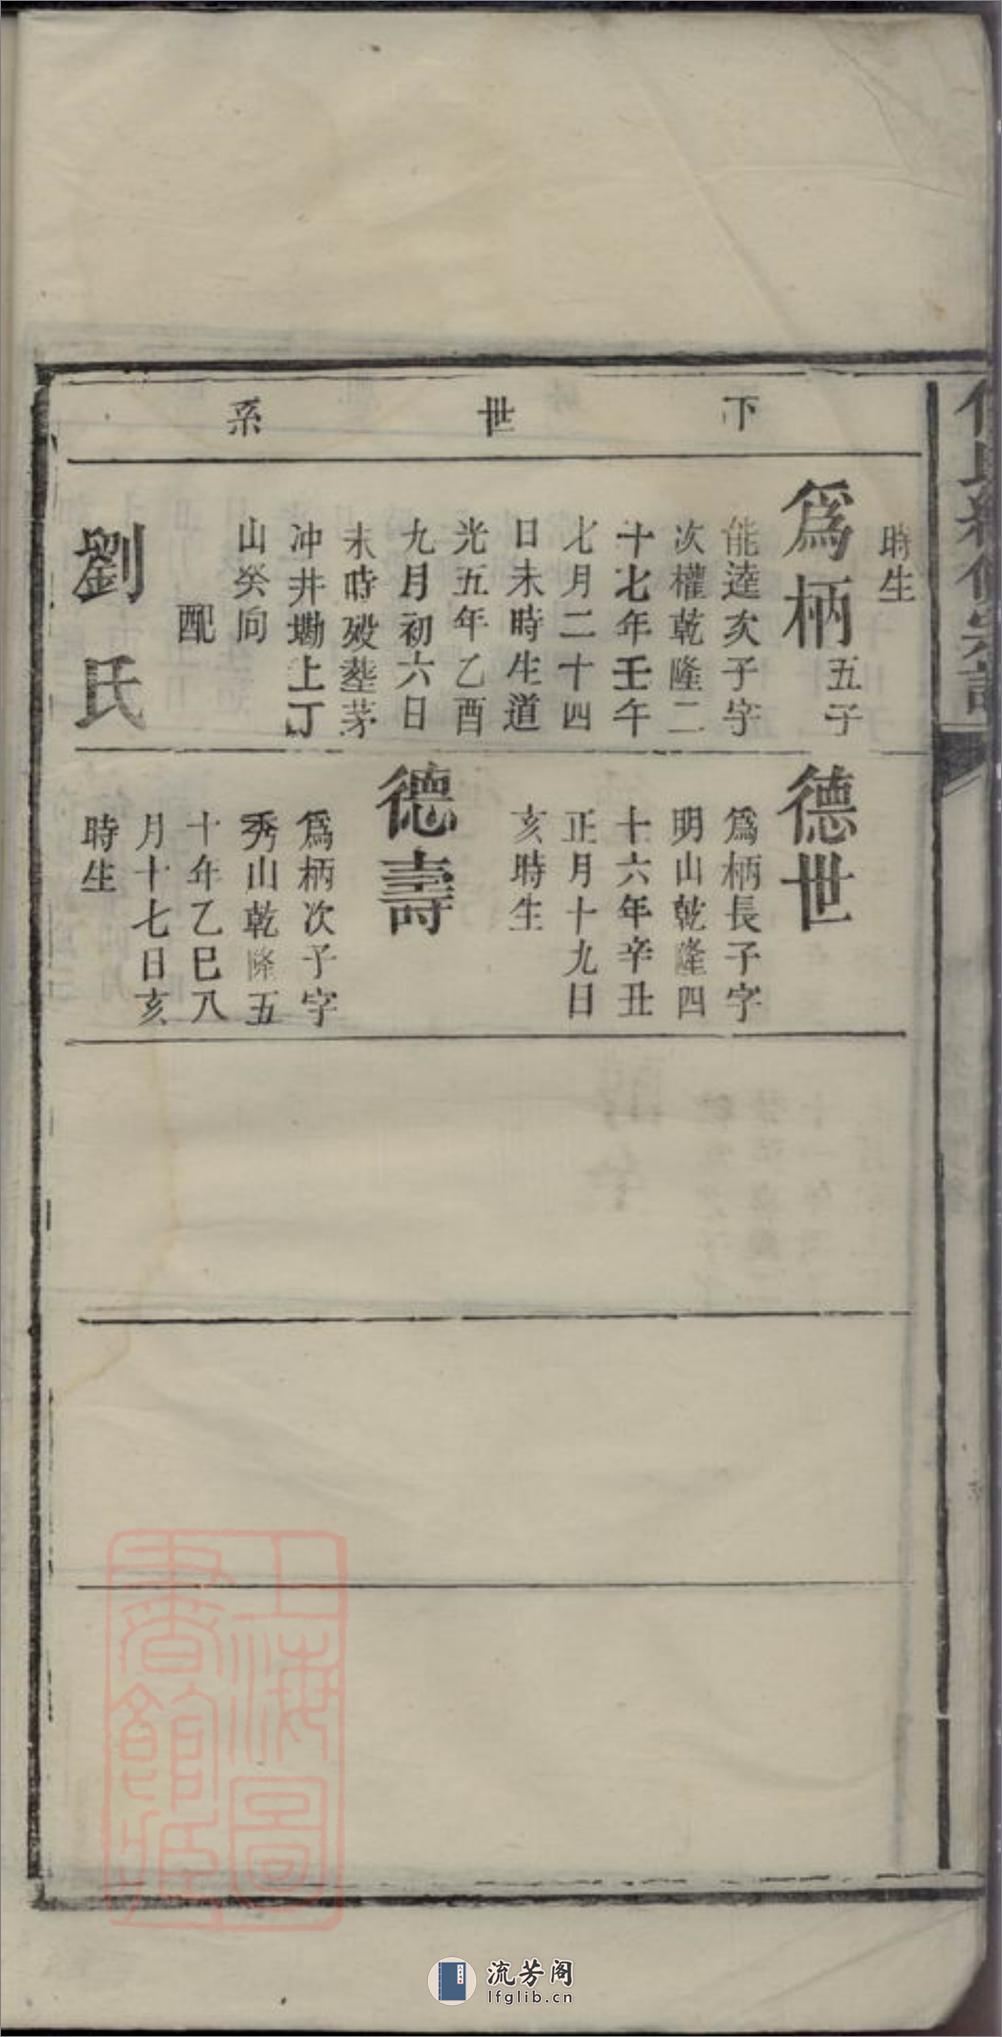 下世系
時生
爲柄五子
能逵次子字
次權乾隆二
十七年壬午
七月二十四
日未時生道
光五年乙酉
九月初六日
未時歿塟茅
冲井勘上丁
山癸向
配
劉氏
德世
爲柄長子字
明山乾隆四
十六年辛丑
正月十九日
亥時生
德壽
爲柄次子字
秀山乾隆五
十年乙巳八
月十七日亥
時生
上海圖
書館藏
流芳阁
lfglib.cn